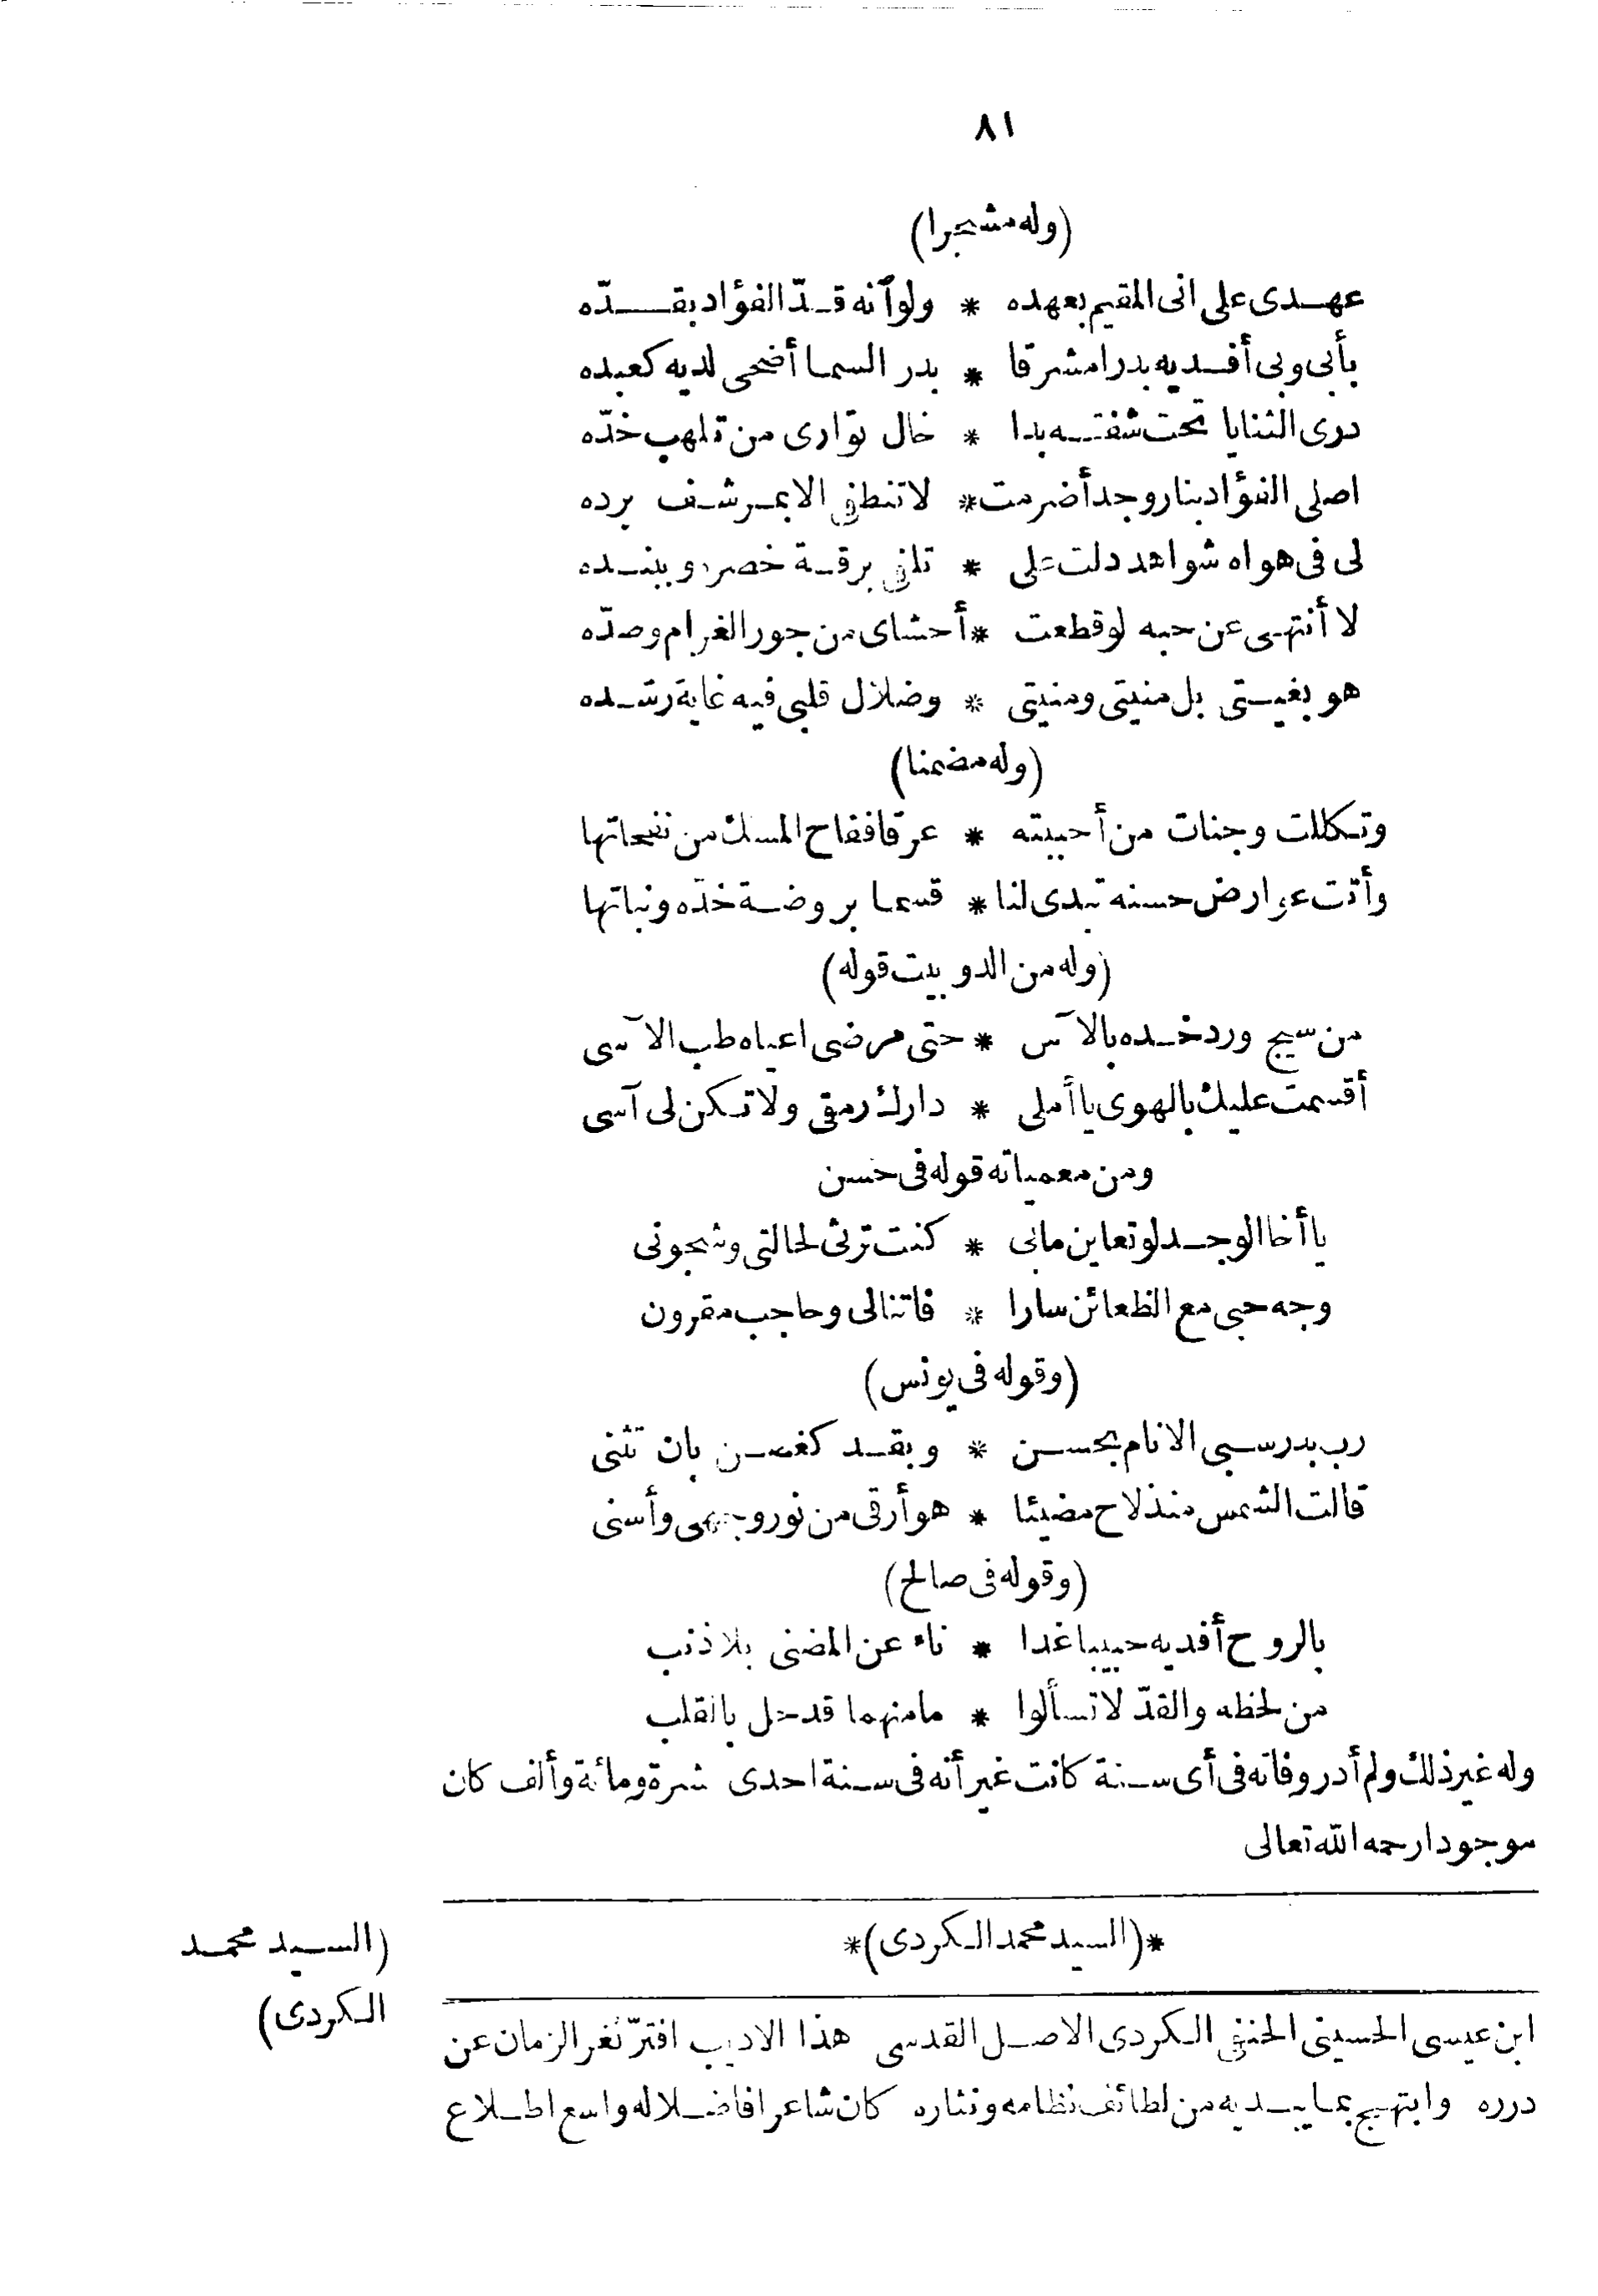 ٨١
(وله مشجرا)
عهدى على انى المقيم بعهده * ولو أنه قدّ الفؤاد بقدّه
بأبى وبى أفديه بدرا مشرقا * بدر السما أضحى لديه كعبده
درى الثنايا تحت شفته بدا * خال توارى من تلهب خدّه
اصلى الفؤاد بنار وجد أضرمت * لا تنطفى الا بمرشف برده
لى فى هواه شواهد دلت على * تلفى برقة خصره وببنده
لا أنتهى عن حبه لو قطعت * أحشاى من جور الغرام وصدّه
هو بغيتى بل منيتى ومنيتى * وضلال قلبى فيه غاية رشده
(وله مضمنا)
وتكللت وجنات من أحببته * عرقا ففاح المسك من نفحاتها
وأتت عوارض حسنه تبدى لنا * قسما بروضة خدّه ونباتها
(وله من الدوبيت قوله)
من سيج ورد خده بالآس * حتى مرضى اعياه طب الآسى
أقسمت عليك بالهوى يا أملى * دارك رمقى ولا تكن لى آسى
ومن معمياته قوله فى حسن
يا أخا الوجد لو تعاين مابى * كنت ترثى لحالتى وشجونى
وجه حبى مع الظعائن سارا * فاتنا لى وحاجب مقرون
(وقوله فى يونس)
رب بدر سبى الانام بحسن * وبقد كغصن بان تثنى
قالت الشمس منذ لاح مضيئا * هو أرقى من نور وجهى وأسنى
(وقوله فى صالح)
بالروح أفديه حبيبا غدا * ناء عن المضنى بلا ذنب
من لحظه والقدّ لا تسألوا * ما منهما قد حل بالقلب
وله غير ذلك ولم أدر وفاته فى أى سنة كانت غير أنه فى سنة احدى عشرة ومائة وألف كان
موجودا رحمه الله تعالى
*(السيد محمد الكردى)*
(السيد محمد
الكردى)
ابن عيسى الحسينى الحنفى الكردى الاصل القدسى هذا الاديب افترّ ثغر الزمان عن
درره وابتهج بما يبديه من لطائف نظامه ونثاره كان شاعرا فاضلا له واسع اطلاع